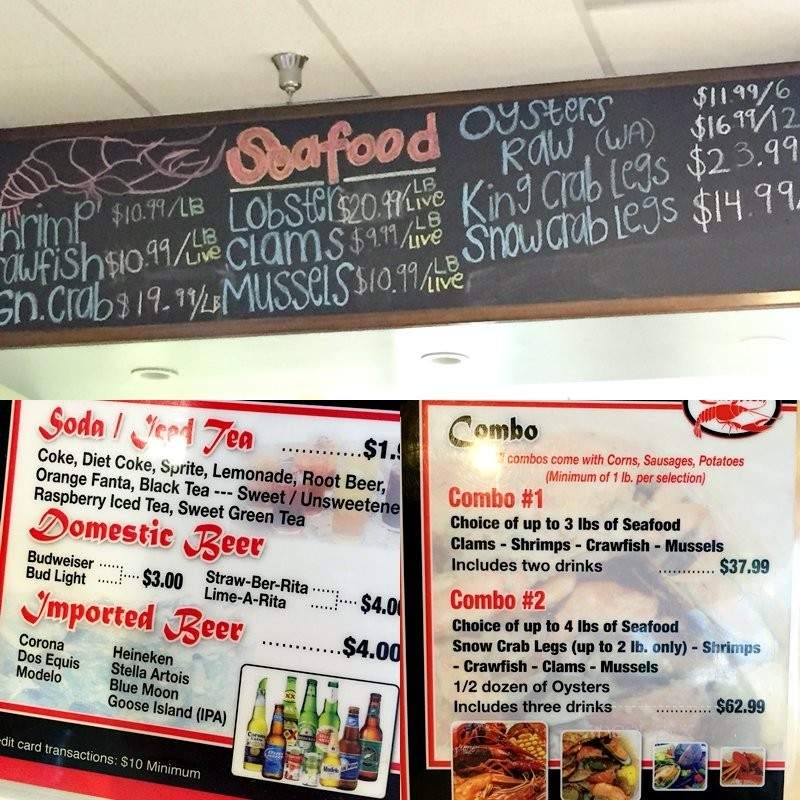 Seafood
hrimp $10.99/LB
rawfish $10.99/LB Live
gn. Crab $19.99/LB
Lobster $20.99/LB Live
Clams $9.99/LB Live
Mussels $10.99/LB Live
Oysters $11.99/6
Raw (WA) $16.99/12
King Crab Legs $23.99
Snow Crab Legs $14.99/
Soda / Iced Tea ............. $1.9
Coke, Diet Coke, Sprite, Lemonade, Root Beer,
Orange Fanta, Black Tea --- Sweet / Unsweetene
Raspberry Iced Tea, Sweet Green Tea
Domestic Beer
Budweiser
Bud Light
$3.00
Straw-Ber-Rita
Lime-A-Rita
$4.00
Imported Beer ............. $4.00
Corona
Dos Equis
Modelo
Heineken
Stella Artois
Blue Moon
Goose Island (IPA)
edit card transactions: $10 Minimum
Combo
combos come with Corns, Sausages, Potatoes
(Minimum of 1 lb. per selection)
Combo #1
Choice of up to 3 lbs of Seafood
Clams - Shrimps - Crawfish - Mussels
Includes two drinks ............ $37.99
Combo #2
Choice of up to 4 lbs of Seafood
Snow Crab Legs (up to 2 lb. only) - Shrimps
- Crawfish - Clams - Mussels
1/2 dozen of Oysters
Includes three drinks ............ $62.99